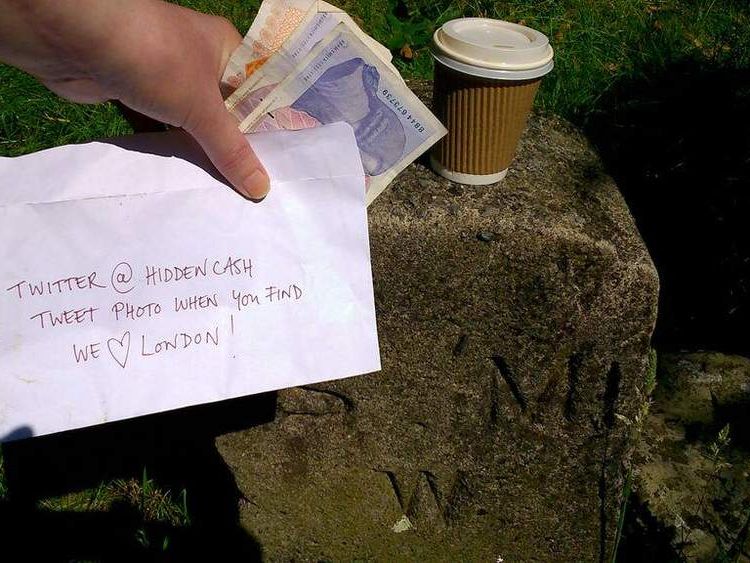 TWITTER @ HIDDENCASH
TWEET PHOTO WHEN YOU FIND
WE ♡ LONDON!
BB44673739
M
W